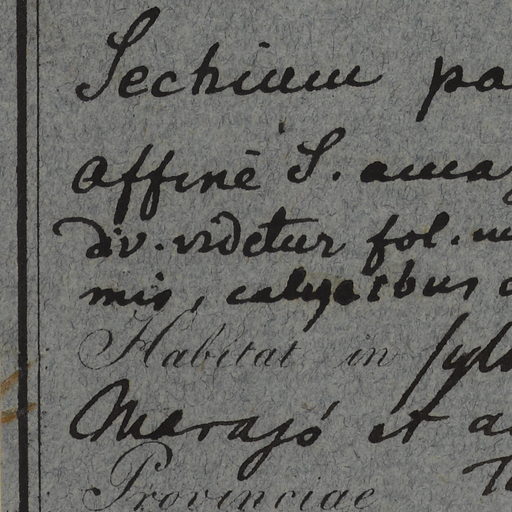 Sechium pa
affine S. ama
div. videtur fol.
mis, calycibus
Habitat in sylv
Marajó et a
Provinciae